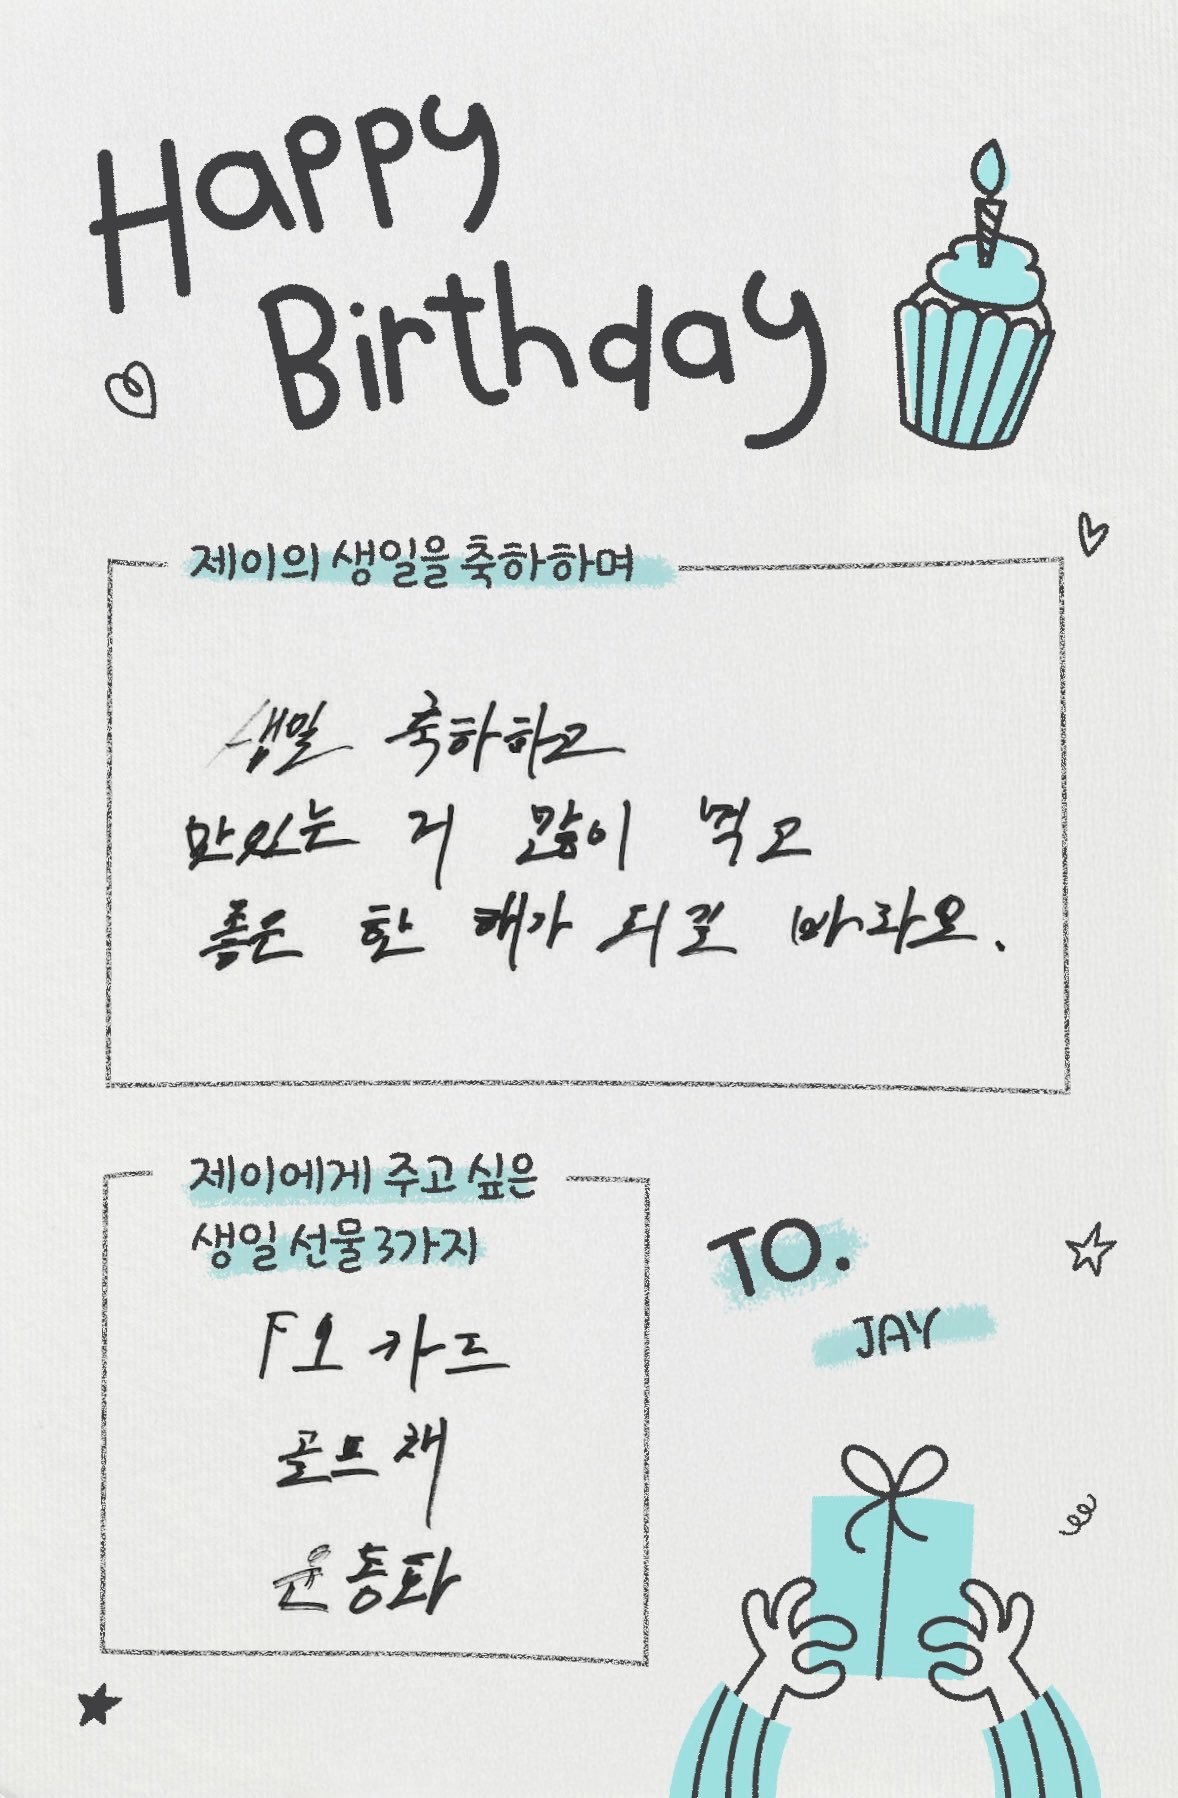 Happy
Birthday
제이의 생일을 축하하며
생일 축하하고
맛있는 거 많이 먹고
좋은 한 해가 되길 바라오.
제이에게 주고 싶은
생일 선물 3가지
TO.
JAY
카드
골프채
운동화